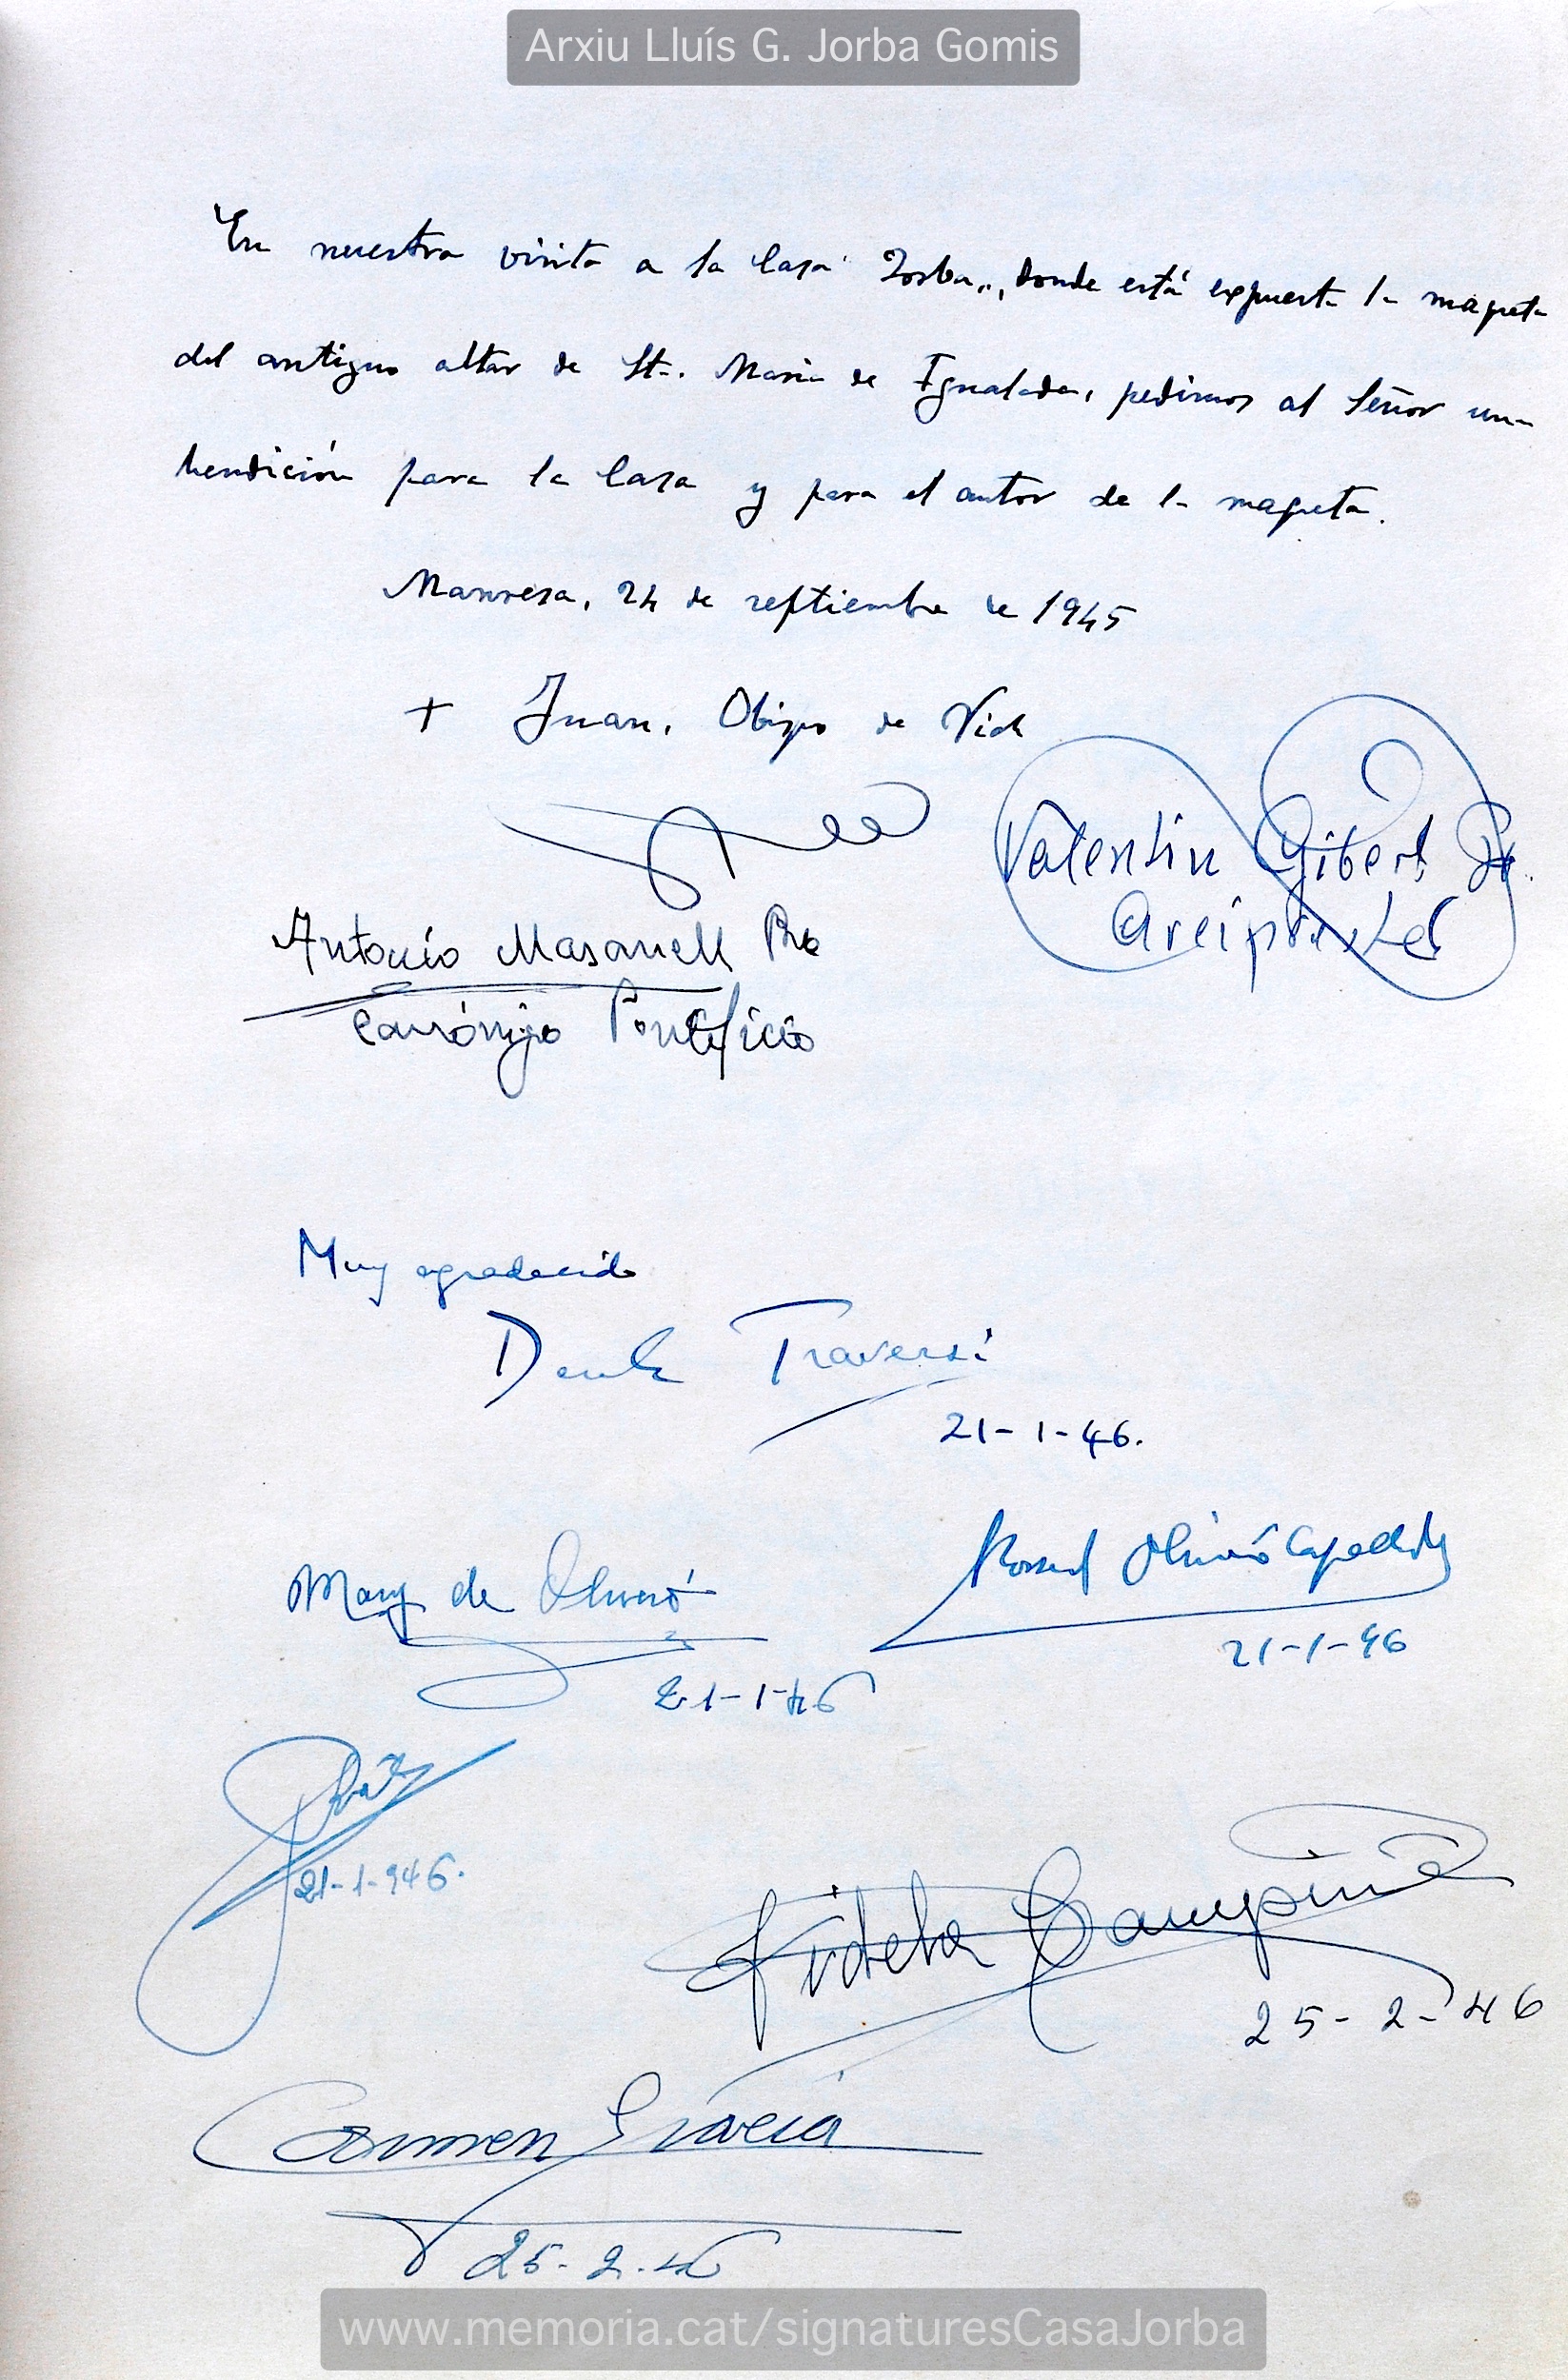 Arxiu Lluís G. Jorba Gomis
En nuestra visita a la Casa Jorba, donde está expuesta la maqueta
del antiguo altar de Sta. Maria de Igualada, pedimos al Señor una
bendición para la Casa y para el autor de la maqueta.
Manresa, 24 de septiembre de 1945
+ Juan, Obispo de Vich
Valentin Gibert Pbro.
Arcipreste
Antonio Masanell Pbro
Canónigo Pontificio
Muy agradecido
Derek Traversi
21-1-46.
Mary de Oliveró
21-1-46
Oliveró Capellades
21-1-46
21-1-946.
Fidela Campiña
25-2-46
Carmen Gracia
25-2-46
www.memoria.cat/signaturesCasaJorba